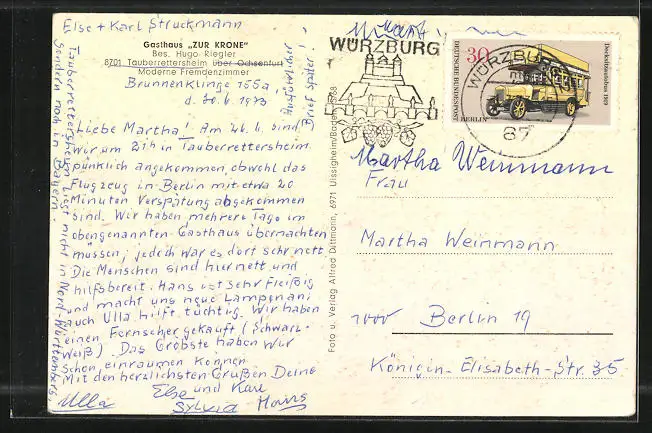 Else + Karl Struckmann
Gasthaus „ZUR KRONE"
Bes. Hugo Riegler
8701 Tauberrettersheim über Ochsenfurt
Moderne Fremdenzimmer
Brunnenklinge 155a,
d. 30.6.1973
Ausführlicher
Brief später!
Liebe Martha! Am 26.6. sind
wir um 21h in Tauberrettersheim
pünklich angekommen, obwohl das
Flugzeug in Berlin mit etwa 20
Minuten Verspätung abgekommen
sind. Wir haben mehrere Tage im
obengenannten Gasthaus übernachten
müssen, jedoch war es dort sehr nett.
Die Menschen sind hier nett und
hilfsbereit. Hans ist sehr fleißig
und macht uns neue Lampen an;
auch Ulla hilft tüchtig. Wir haben
einen Fernseher gekauft (Schwarz-
Weiß). Das Gröbste haben wir
schon einräumen können
Mit den herzlichsten Grüßen Deine
Else und Karl
Ulla Sylvia Hans
Tauberrettersheim liegt nicht in Nord-Württemberg,
sondern noch in Bayern.
Foto u. Verlag Alfred Dittmann, 6971 Uissigheim/Baden
WÜRZBURG
WÜRZBURG
87
30
DEUTSCHE BUNDESPOST
BERLIN
Deckelsitzomnibus 1919
Martha Weinmann
Frau
Martha Weinmann
1000 Berlin 19
Königin-Elisabeth-Str. 35